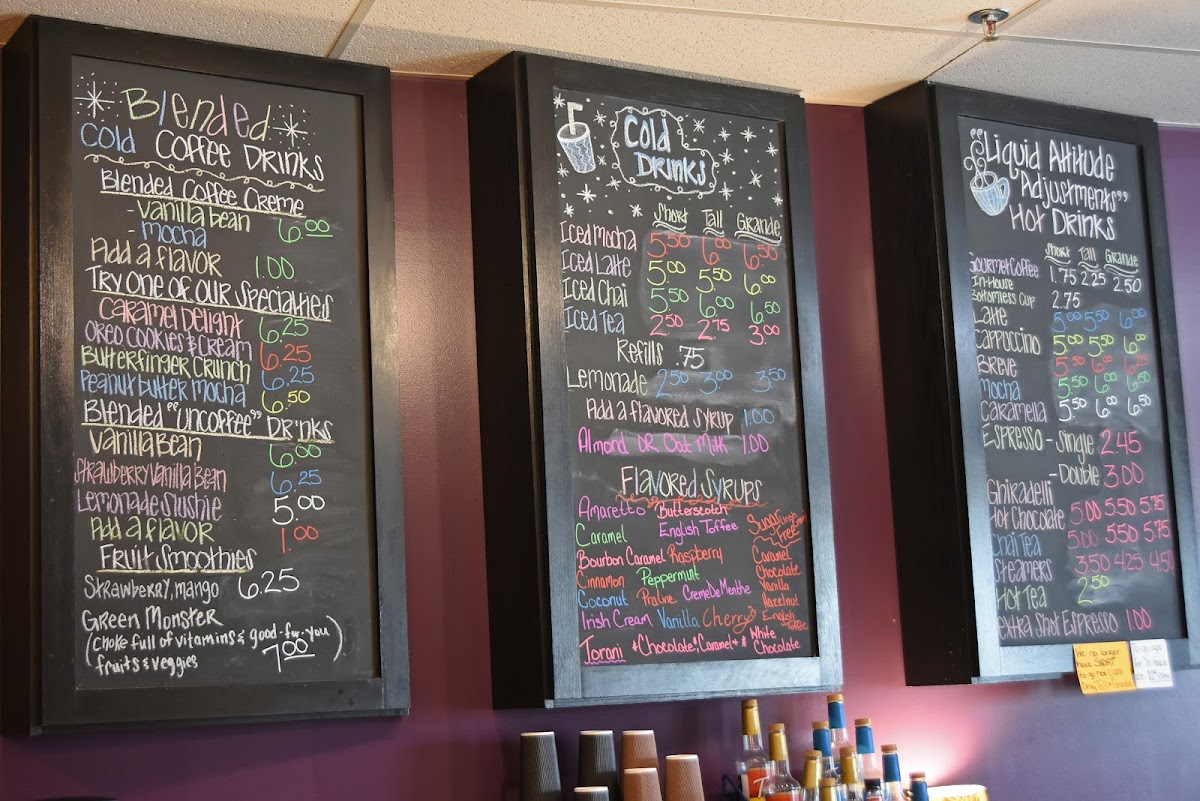 Blended
Cold Coffee Drinks
Blended Coffee Creme
- Vanilla bean 6.00
- mocha
Add a flavor 1.00
Try One of Our Specialties
Caramel Delight 6.25
Oreo Cookies & Cream 6.25
Butterfinger Crunch 6.25
Peanut butter mocha 6.50
Blended "Uncoffee" Drinks
Vanilla Bean 6.00
Strawberry Vanilla Bean 6.25
Lemonade Slushie 5.00
Add a flavor 1.00
Fruit Smoothies
Strawberry, mango 6.25
Green Monster
(Choke full of vitamins & good-for-you
fruits & veggies) 7.00
Cold
Drinks
Short Tall Grande
Iced Mocha 5.50 6.00 6.50
Iced Latte 5.00 5.50 6.00
Iced Chai 5.50 6.00 6.50
Iced Tea 2.50 2.75 3.00
Refills .75
Lemonade 2.50 3.00 3.50
Add a flavored syrup 1.00
Almond OR Oat Milk 1.00
Flavored Syrups
Amaretto Butterscotch
Caramel English Toffee
Bourbon Caramel Raspberry
Cinnamon Peppermint
Coconut Praline Creme De Menthe
Irish Cream Vanilla Cherry
Sugar
Free
Caramel
Chocolate
Vanilla
Hazelnut
English
Toffee
Torani *Chocolate* Caramel * White
Chocolate
"Liquid Attitude
Adjustments"
Hot Drinks
Short Tall Grande
Gourmet Coffee 1.75 2.25 2.50
In-House
Bottomless Cup 2.75
Latte 5.00 5.50 6.00
Cappoccino 5.00 5.50 6.00
Breve 5.50 6.00 6.50
Mocha 5.50 6.00 6.50
Caramella 5.50 6.00 6.50
Espresso - Single 2.45
- Double 3.00
Ghiradelli
Hot Chocolate 5.00 5.50 5.75
Chai Tea 5.00 5.50 5.75
Steamers 3.50 4.25 4.50
Hot Tea 2.50
extra Shot Espresso 1.00
We no longer
have SHORT
to go hot cups